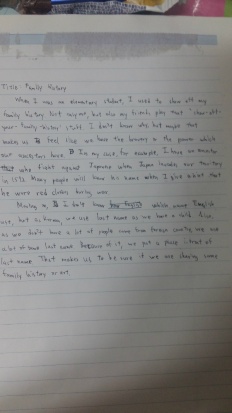 Title: Family History
When I was an elementary student, I used to show off my
family history. Not only me, but also my friends play that "show-off-
your-family-history" fight. I don't know why but maybe that
makes us feel like we have the bravery or the power which
our ancestors have. In my case, for example, I have an ancestor
who fight against Japanese when Japan invades our territory
in 1592. Many people will know his name when I give a hint that
he wore red clothes during war.
Moving on, I don't know which name English
use, but as Korean, we use last name as we have a Also,
as we don't have a lot of people come from foreign country, we use
a lot of same last name. Because of it, we put a place in front of
last name. That makes us to be sure if we are sharing same
family history or not.